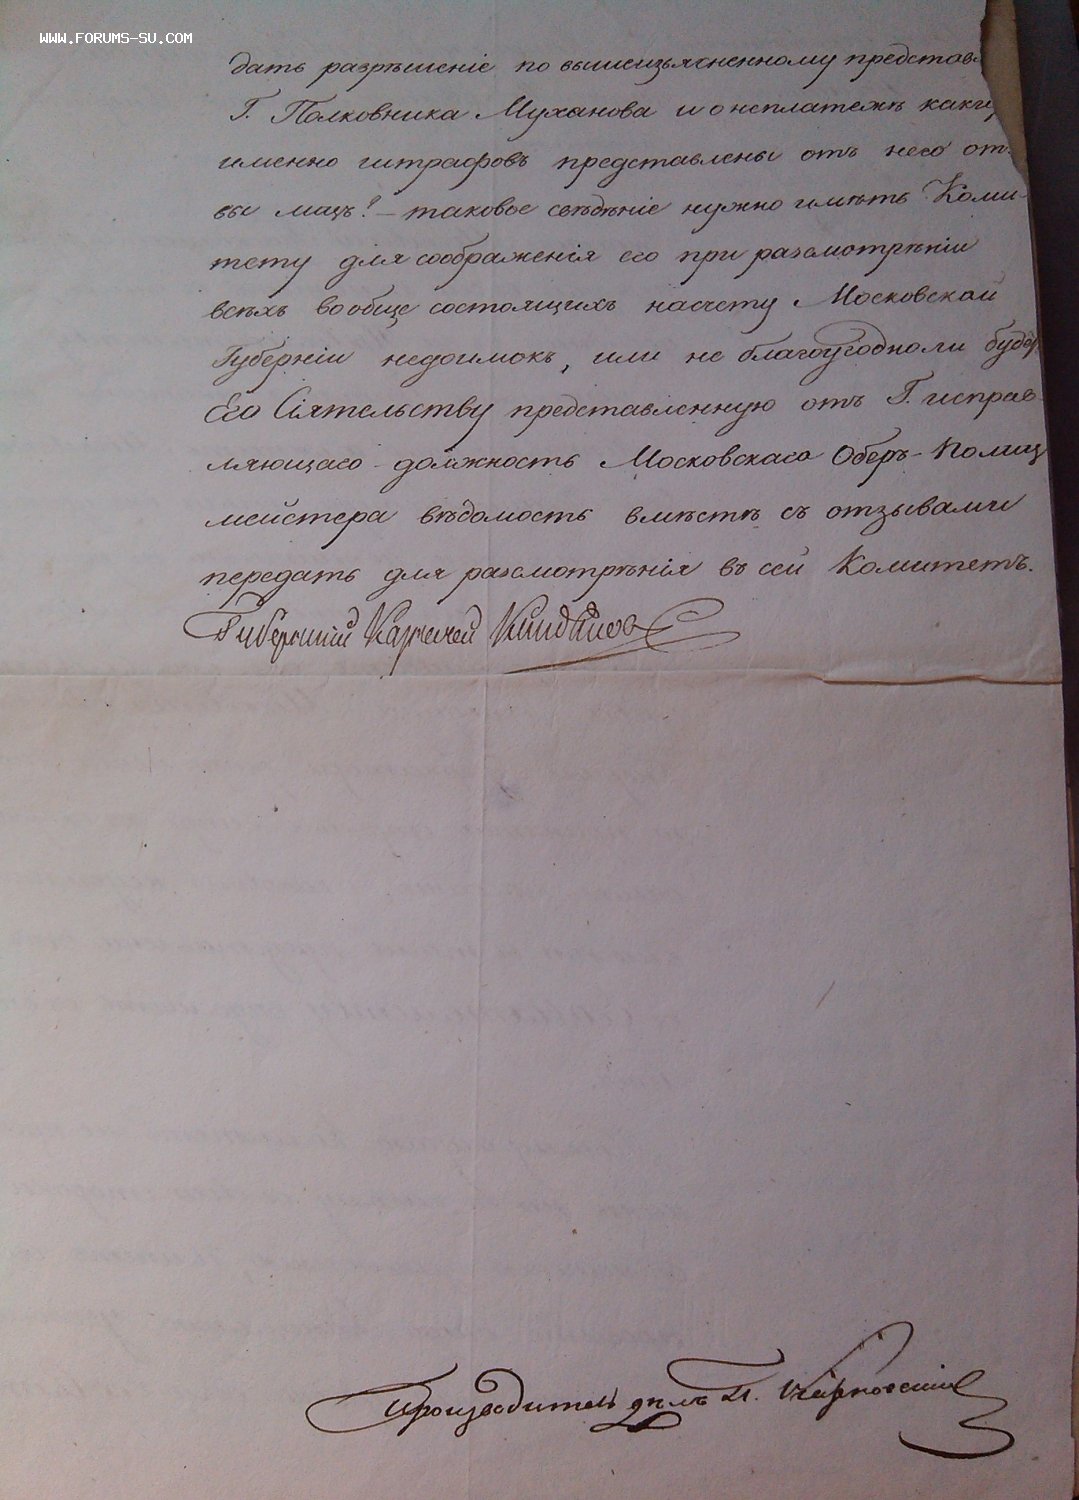 WWW.FORUMS-SU.COM
дать разрѣшеніе по вышеизъясненному представл
Г. Полковника Муханова и о неплатежѣ каки
именно штрафовъ представлены отъ него от
вы мацъ? – таковое свѣдѣніе нужно имѣть Коми-
тету для соображенія его при разсмотрѣніи
всѣхъ вообще состоящихъ насчету Московской
Губерніи недоимокъ, или не благоугодноли буде
Его Сіятельству представленную отъ Г. исправ-
ляющаго должность Московскаго Оберъ-Полиц
мейстера вѣдомость вмѣстѣ съ отзывами
передать для разсмотрѣнія въ сей Комитетъ.
Губернскій Казначей
Производитель дѣлъ